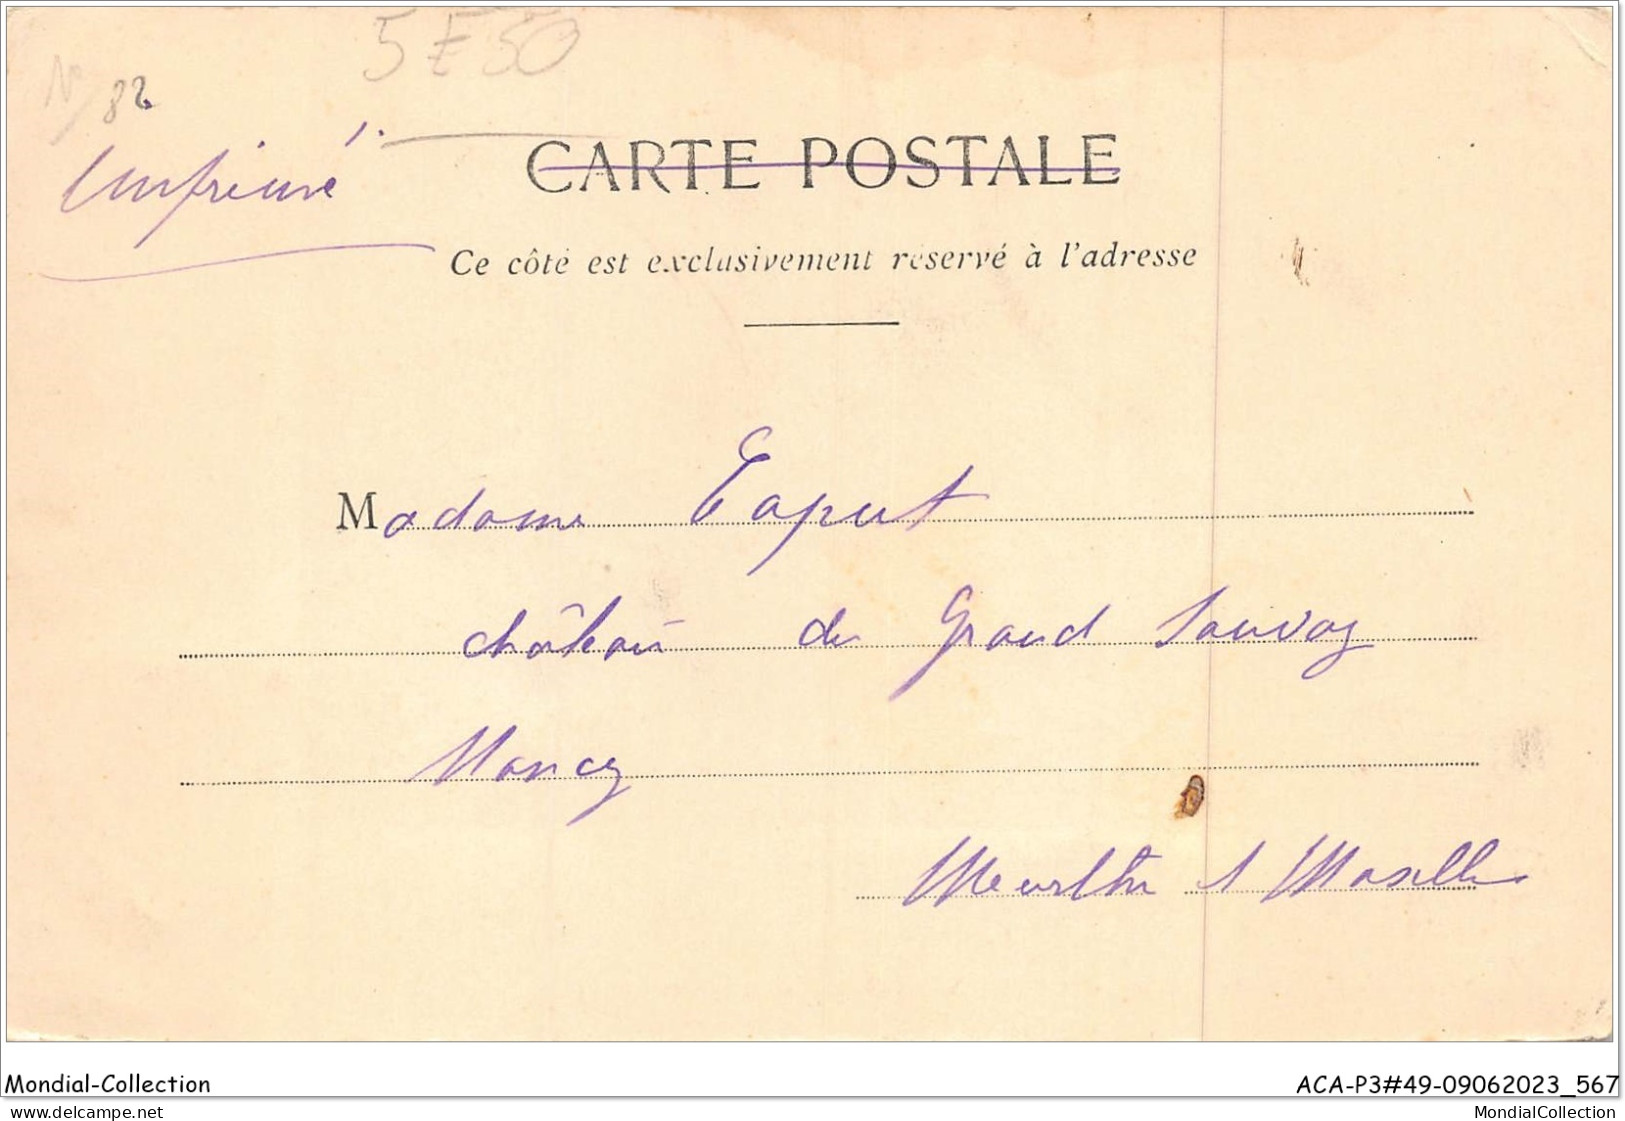 5 E 50
N° / 82
Imprimé
CARTE POSTALE
Ce côté est exclusivement réservé à l'adresse
Madame Taput
château du Grand Sauvoy
Nancy
Meurthe & Moselle
Mondial-Collection
ACA-P3#49-09062023_567
delcampe.net
MondialCollection